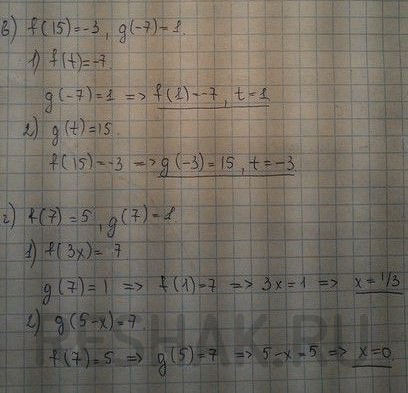 в) f(15)=-3, g(-7)=1.
1) f(t)=-7.
g(-7)=1 => f(1)=-7, t=1
2) g(t)=15.
f(15)=-3 => g(-3)=15, t=-3
г) f(7)=5, g(7)=1
1) f(3x)= 7
g(7)=1 => f(1)=7 => 3x=1 => x=1/3
2) g(5-x)=7.
RESHAK.RU
f(7)=5 => g(5)=7 => 5-x=5 => x=0.